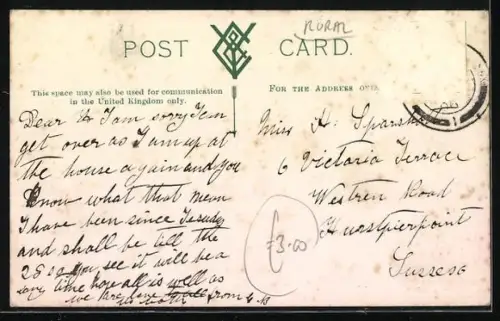 RURAL
POST CARD.
This space may also be used for communication
in the United Kingdom only.
FOR THE ADDRESS ONLY.
Dear H I am sorry I can
get over as I am up at
the house again and you
Know what that mean
I have been since Tesuday
and shall be till the
28 so you see it will be a
long time hope all is well as
we are from
Miss H.
6 Victoria Terrace
Westren Road
Hurstpierpoint
Sussesc
£3.00